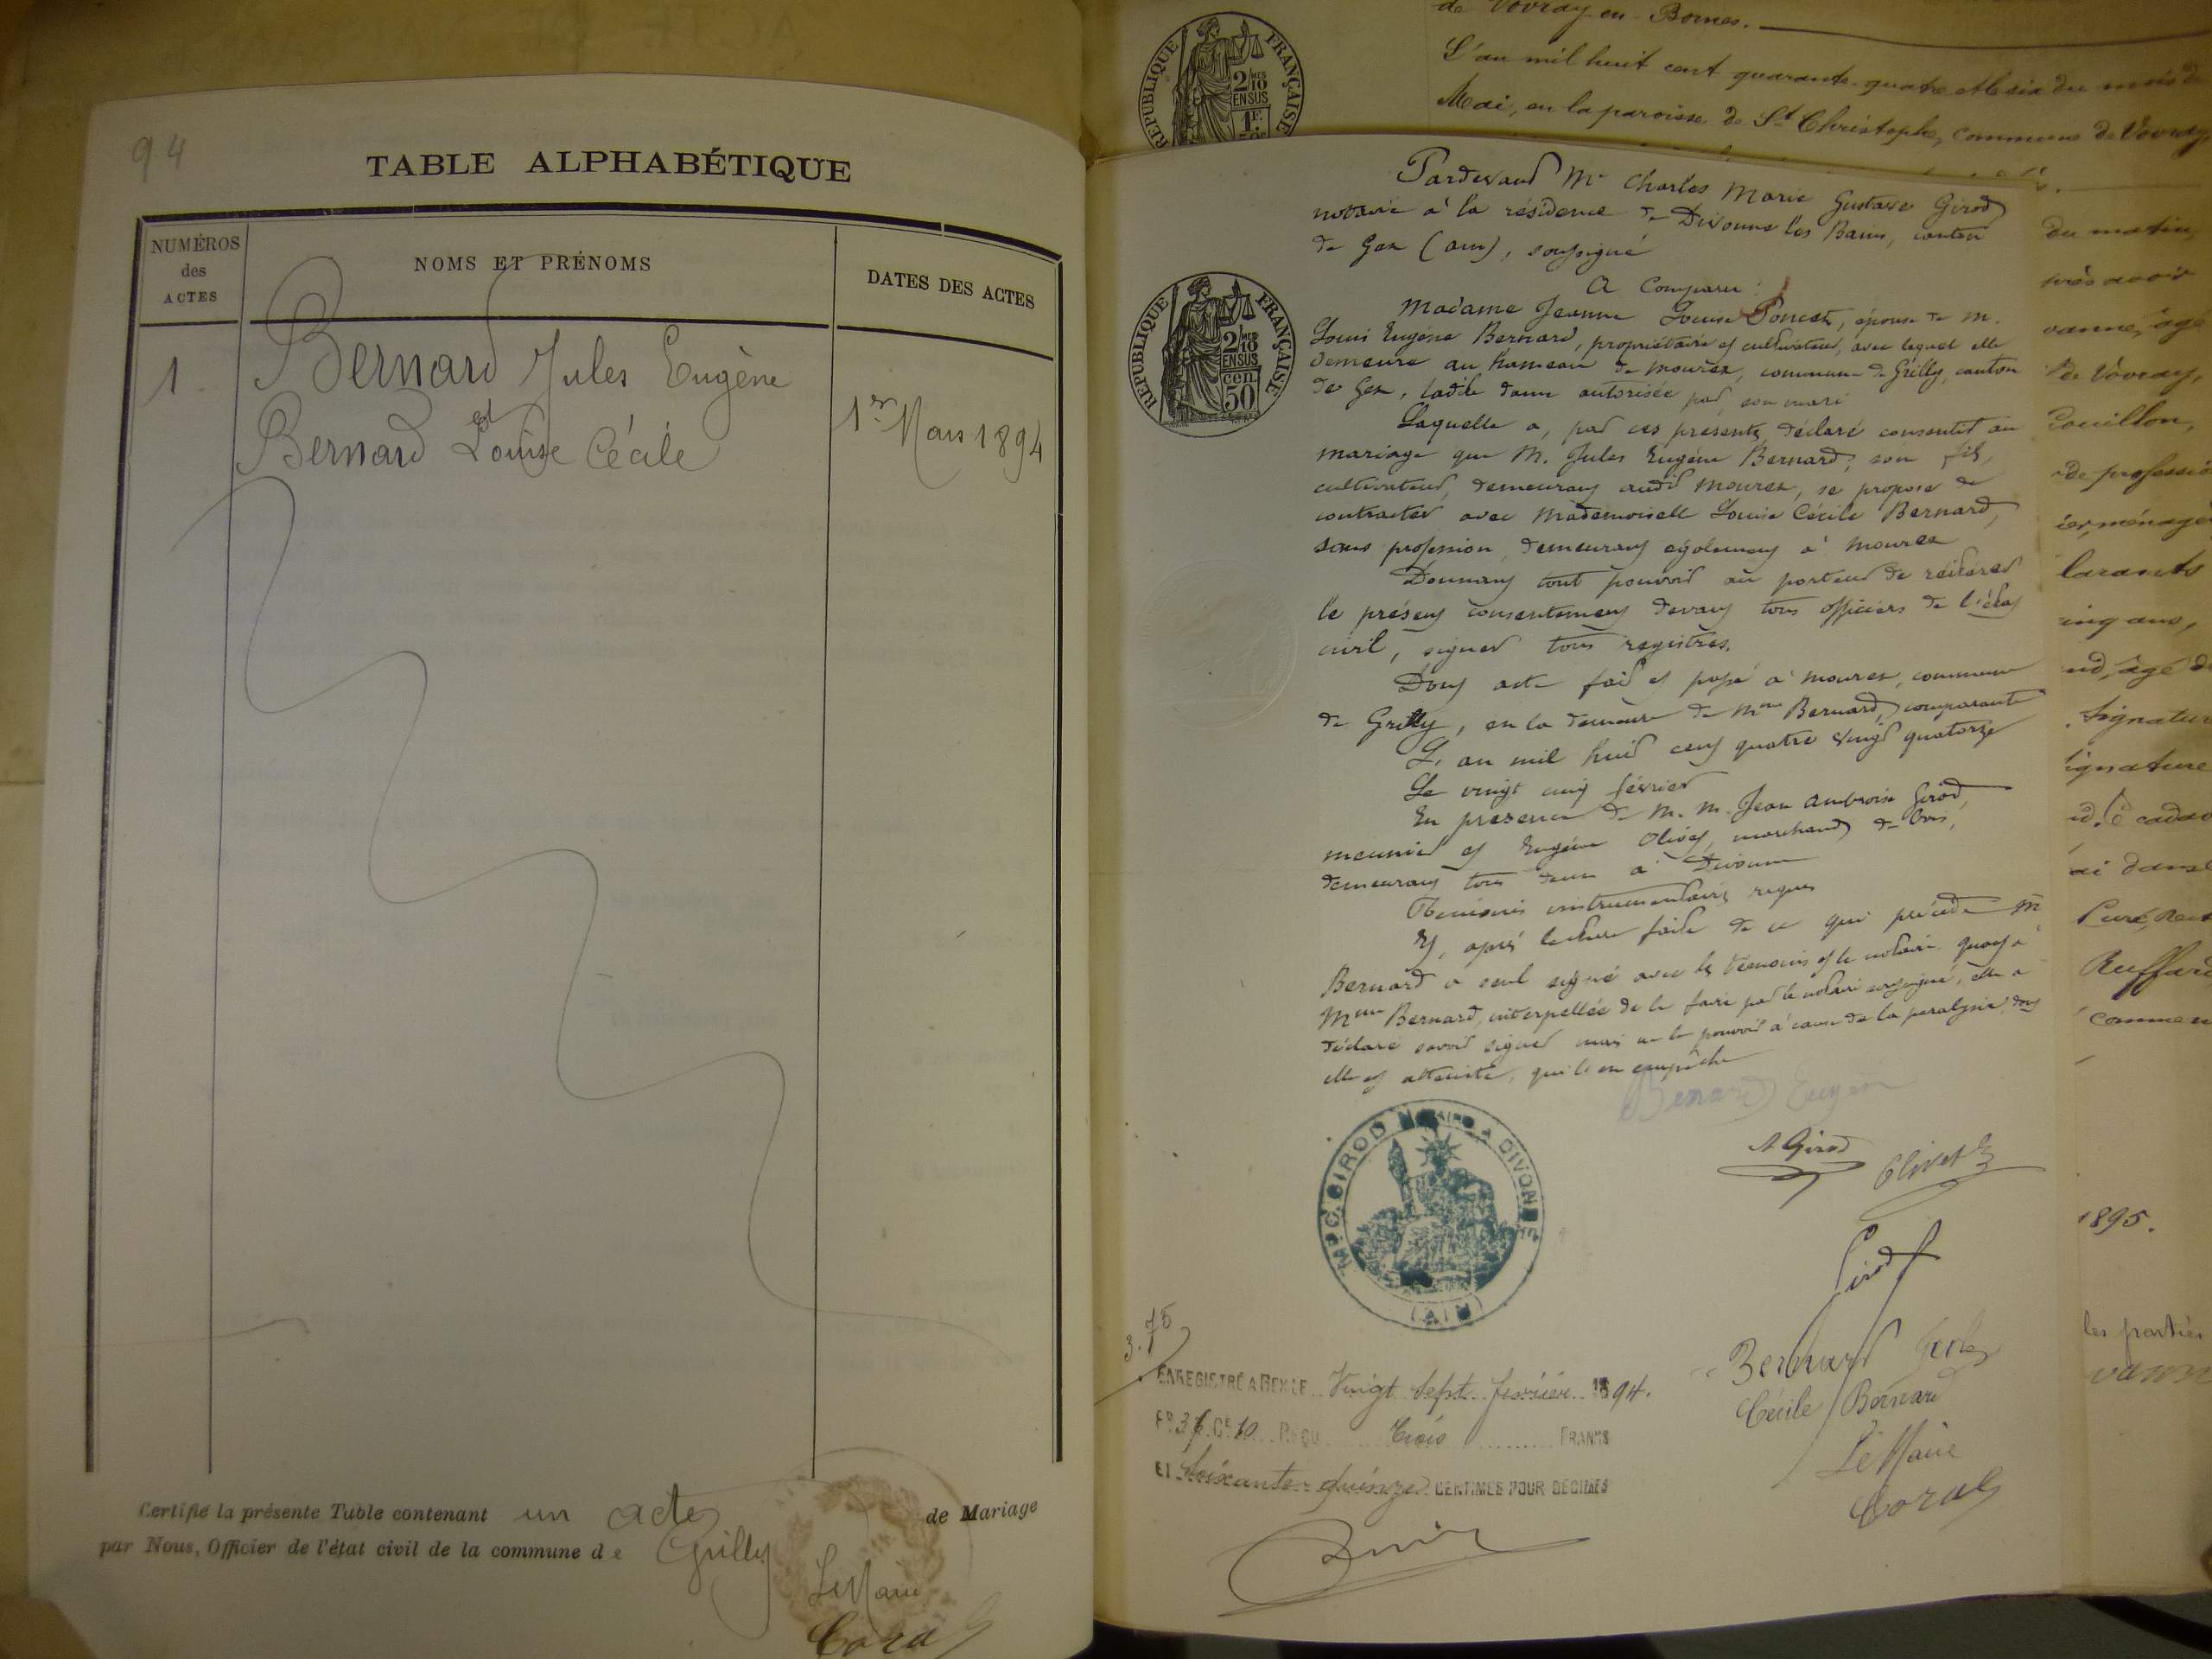 94
TABLE ALPHABÉTIQUE
NUMÉROS
des
ACTES
NOMS ET PRÉNOMS
DATES DES ACTES
1
Bernard Jules Eugène
et
Bernard Louise Cécile
1er Mars 1894
Certifié la présente Table contenant un acte de Mariage
par Nous, Officier de l'état civil de la commune de Grilly
Le Maire
de Vovray en Bornes.
L'an mil huit cent quarante-quatre et le six du mois de
Mai, en la paroisse de St Christophe, commune de Vovray
REPUBLIQUE FRANÇAISE
2/10
EN SUS
1F.
Pardevant Me Charles Marie Gustave Girod
notaire à la résidence de Divonne les Bains, canton
de Gex (ain), soussigné
A Comparu :
REPUBLIQUE FRANÇAISE
2/10
EN SUS
cen
50
Madame Jeanne Louise Poncet, épouse de M.
Louis Eugène Bernard, propriétaire et cultivateur, avec lequel elle
demeure au hameau de Mourex, commune de Grilly, canton
de Gex, ladite dame autorisée par son mari
Laquelle a, par ces présentes, déclaré consentir au
mariage que M. Jules Eugène Bernard, son fils,
cultivateur, demeurant audit Mourex, se propose de
contracter avec Mademoiselle Louise Cécile Bernard,
sans profession, demeurant également à Mourex
Donnant tout pouvoir au porteur de réitérer
le présent consentement devant tous officiers de l'état
civil, signer tous registres.
Dont acte fait et passé à Mourex, commune
de Grilly, en la demeure de Mme Bernard, comparante
L'an mil huit cent quatre vingt quatorze
Le vingt cinq février
En présence de M. M. Jean Ambroise Girod,
meunier et Eugène Olivet, marchand de bois,
demeurant tous deux à Divonne
Témoins instrumentaires requis
Et, après lecture faite de ce qui précède M
Bernard a seul signé avec les témoins et le notaire quant à
Mme Bernard, interpellée de le faire par le notaire soussigné, elle a
déclaré savoir signer mais ne le pouvoir à cause de la paralysie dont
elle est atteinte, qui l'en empêche
Bernard Eugène
A Girod
Olivet E
Girod
GIROD A DIVONNE
(AIN)
3.75
Bernard Jules
Cécile Bernard
Le Maire
ENREGISTRÉ A GEX LE Vingt sept février 1894.
Fo 36 Ce 10 REÇU Trois FRANCS
ET Soixante-quinze CENTIMES POUR DÉCIMES
du matin,
près avoir
vanne, âgé
de Vovray,
Couillon,
de professio
ier, ménagè
larants
inq ans,
ud, âgé de
Signature
ignature
ai dans l
Ruffard
commen
1895.
les parties